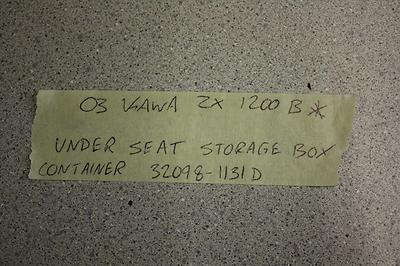 03 KAWA ZX 1200 B *
UNDER SEAT STORAGE BOX
CONTAINER 32098-1131D